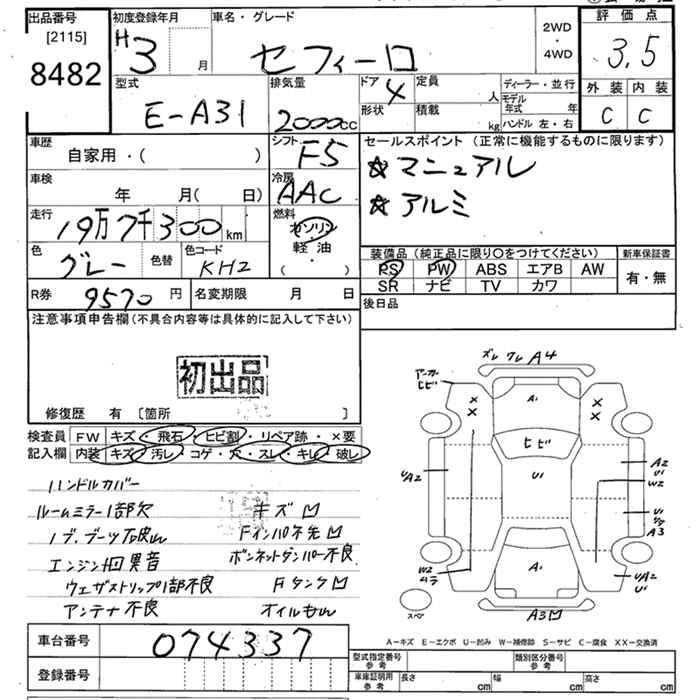 出品番号
[2115]
8482
初度登録年月
H3 月
車名・グレード
セフィーロ
2WD
・
4WD
評価点
3.5
外装 内装
C C
型式
E-A31
排気量
2000cc
ドア
4
形状
定員
人
積載
kg
ディーラー・並行
モデル年式 年
ハンドル 左・右
車歴
自家用・( )
シフト
F5
車検
年 月( 日)
冷房
AAC
走行
19万7千300km
燃料
ガソリン
・
軽油
・
( )
色
グレー
色替
色コード
KH2
R券
9570円
名変期限 月 日
セールスポイント(正常に機能するものに限ります)
☆マニュアル
☆アルミ
装備品(純正品に限り○をつけてください)
PS PW ABS エアB AW
SR ナビ TV カワ
新車保証書
有・無
後日品
注意事項申告欄(不具合内容等は具体的に記入して下さい)
初出品
修復歴 有 [箇所 ]
検査員記入欄
FW キズ・飛石・ヒビ割・リペア跡・×要
内装 キズ・汚し・コゲ・穴・スレ・キレ・破し
ハンドルカバー
ルームミラー1部欠 キズ凹
ノブ.ブーツ破れ Fインパネ先凹
エンジン回異音 ボンネットダンパー不良
ウェザストリップ1部不良 Fタンク凹
アンテナ不良 オイルもれ
ズレ ワレ A4
ヒビ
A1
×
×
×
×
ヒビ
UA2
U1
A2
U1
W2
U1
A3
W2
ムラ
A1
UA2
U1
スペアー
A3凹
A-キズ E-エクボ U-凹み W-補修跡 S-サビ C-腐食 XX-交換済
車台番号
074337
登録番号
型式指定番号
参考
類別区分番号
参考
車庫証明用
参考
長さ cm 幅 cm 高さ cm